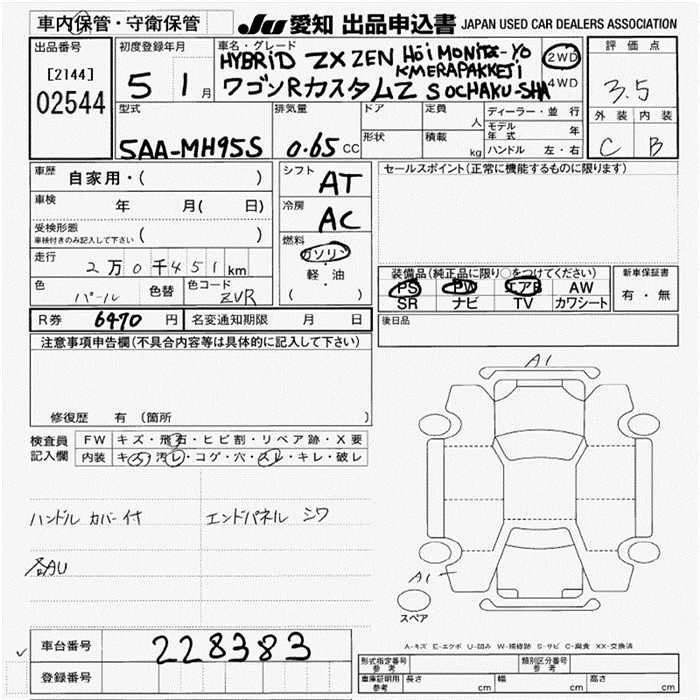 車内保管・守衛保管
JU 愛知 出品申込書 JAPAN USED CAR DEALERS ASSOCIATION
出品番号
[2144]
02544
初度登録年月
5 1月
車名・グレード
HYBRID ZX ZEN HōiMONITĀ-YO
KMERAPAKKEJI
ワゴンRカスタムZ SOCHAKU-SHA
2WD
4WD
評価点
3.5
外装 内装
C B
型式
5AA-MH95S
排気量
0.65 CC
ドア
形状
定員 人
積載 kg
ディーラー・並行
モデル年式 年
ハンドル 左・右
車歴 自家用・( )
車検 年 月( 日)
受検形態
車検付きのみ記入して下さい ( )
走行
2万0千451km
色 パール 色替
色コード ZVR
シフト AT
冷房 AC
燃料
ガソリン
軽・油
( )
セールスポイント(正常に機能するものに限ります)
装備品(純正品に限り○をつけてください)
PS PW エアB AW
SR ナビ TV カワシート
新車保証書
有・無
R券 6470 円
名変通知期限 月 日
後日品
注意事項申告欄(不具合内容等は具体的に記入して下さい)
修復歴 有(箇所 )
検査員記入欄
FW キズ・飛石・ヒビ割・リペア跡・X要
内装 キズ・汚レ・コゲ・穴・スレ・キレ・破レ
ハンドルカバー付 エンドパネル シワ
各AU
A1
A1
スペア
A-キズ E-エクボ U-凹み W-補修跡 S-サビ C-腐食 XX-交換済
車台番号 228383
登録番号
形式指定番号 参考
類別区分番号 参考
車庫証明用 参考 長さ cm 幅 cm 高さ cm